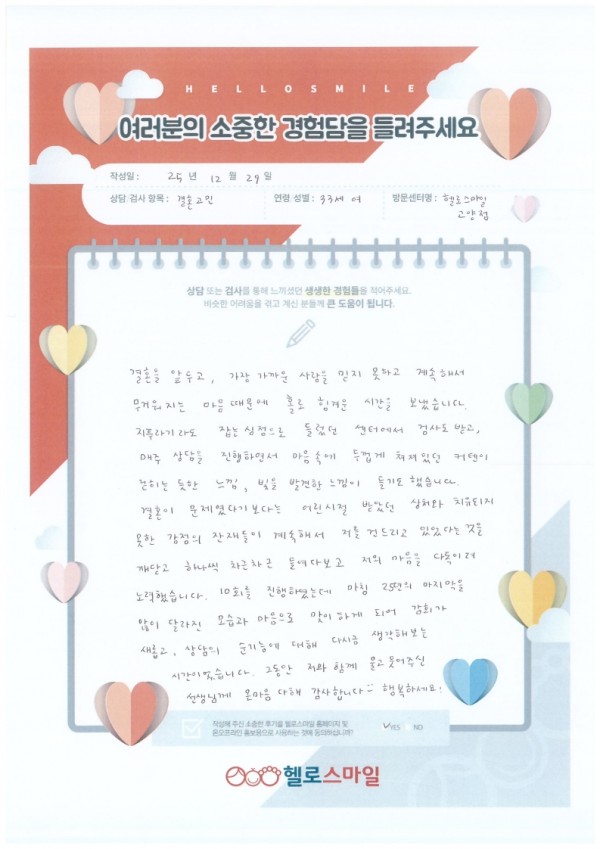 HELLOSMILE
여러분의 소중한 경험담을 들려주세요
작성일 : 25 년 12 월 29 일
상담/검사 항목 : 결혼고민 연령/성별 : 33세 여 방문센터명 : 헬로스마일
고양점
상담 또는 검사를 통해 느끼셨던 생생한 경험들을 적어주세요.
비슷한 어려움을 겪고 계신 분들께 큰 도움이 됩니다.
결혼을 앞두고, 가장 가까운 사람을 믿지 못하고 계속해서
무거워지는 마음 때문에 홀로 힘겨운 시간을 보냈습니다.
지푸라기라도 잡는 심정으로 들렀던 센터에서 검사도 받고,
매주 상담을 진행하면서 마음속에 두껍게 쳐져있던 커텐이
걷히는 듯한 느낌, 빛을 발견한 느낌이 들기도 했습니다.
결혼이 문제였다기보다는 어린시절 받았던 상처와 치유되지
못한 감정의 잔재들이 계속해서 저를 건드리고 있었다는 것을
깨닫고 하나씩 차근차근 들여다보고 저의 마음을 다독이려
노력했습니다. 10회를 진행하였는데 마침 25년의 마지막을
많이 달라진 모습과 마음으로 맞이하게 되어 감회가
새롭고, 상담의 순기능에 대해 다시금 생각해보는
시간이었습니다. 그동안 저와 함께 울고 웃어주신
선생님께 온마음 다해 감사합니다 :) 행복하세요!
작성해 주신 소중한 후기를 헬로스마일 홈페이지 및
온오프라인 홍보용으로 사용하는 것에 동의하십니까? ✓YES NO
헬로스마일